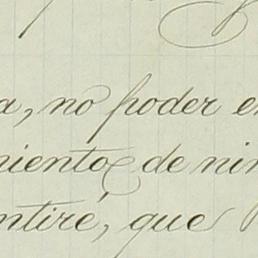 a, no poder e
niento de nin
ntiré, que